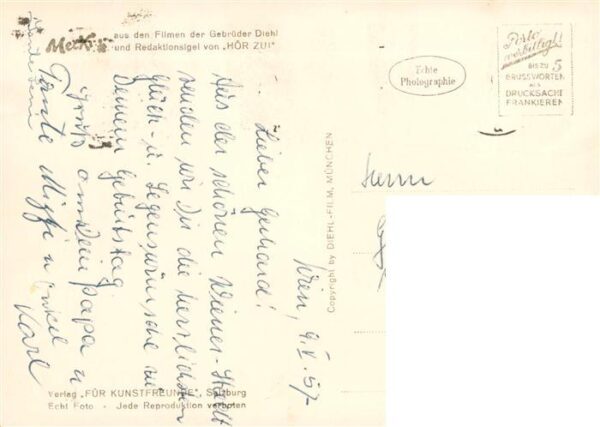 Mecki aus den Filmen der Gebrüder Diehl
und Redaktionsigel von „HÖR ZU!"
Echte
Photographie
Porto
verbilligt!
BIS ZU 5
GRUSSWORTEN
ALS
DRUCKSACHE
FRANKIEREN
Wien, 9.V.57
Lieber Gerhard!
Aus der schönen Wiener-Stadt
senden wir Dir die herzlichsten
Glück- u. Segenswünsche zu
Deinem Geburtstag
Gruß an Dein Papa u
Tante Mizzi u Onkel
Karl
Herrn
Copyright by DIEHL-FILM, MÜNCHEN
Verlag „FÜR KUNSTFREUNDE", Salzburg
Echt Foto - Jede Reproduktion verboten